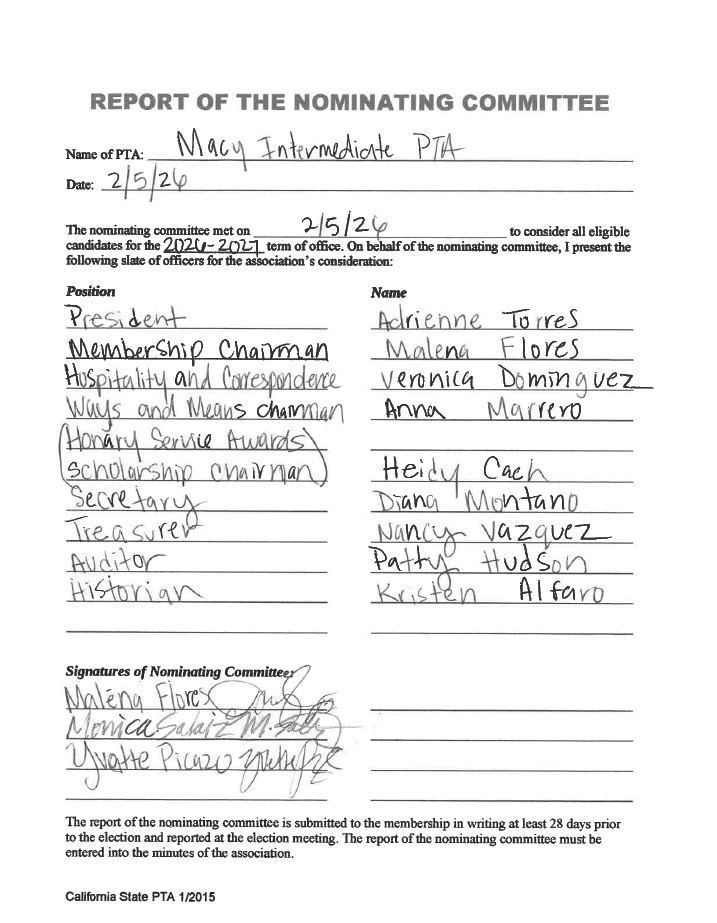 REPORT OF THE NOMINATING COMMITTEE
Name of PTA: Macy Intermediate PTA
Date: 2/5/26
The nominating committee met on 2/5/26 to consider all eligible
candidates for the 2026-2027 term of office. On behalf of the nominating committee, I present the
following slate of officers for the association's consideration:
Position Name
President Adrienne Torres
Membership Chairman Malena Flores
Hospitality and Correspondence Veronica Dominguez
Ways and Means chairman Anna Marrero
(Honary Service Awards)
(Scholarship chairman) Heidy Cach
Secretary Diana Montano
Treasurer Nancy Vazquez
Auditor Patty Hudson
Historian Kristen Alfaro
Signatures of Nominating Committee:
Malena Flores
Monica
Yvatte Picazo
The report of the nominating committee is submitted to the membership in writing at least 28 days prior
to the election and reported at the election meeting. The report of the nominating committee must be
entered into the minutes of the association.
California State PTA 1/2015